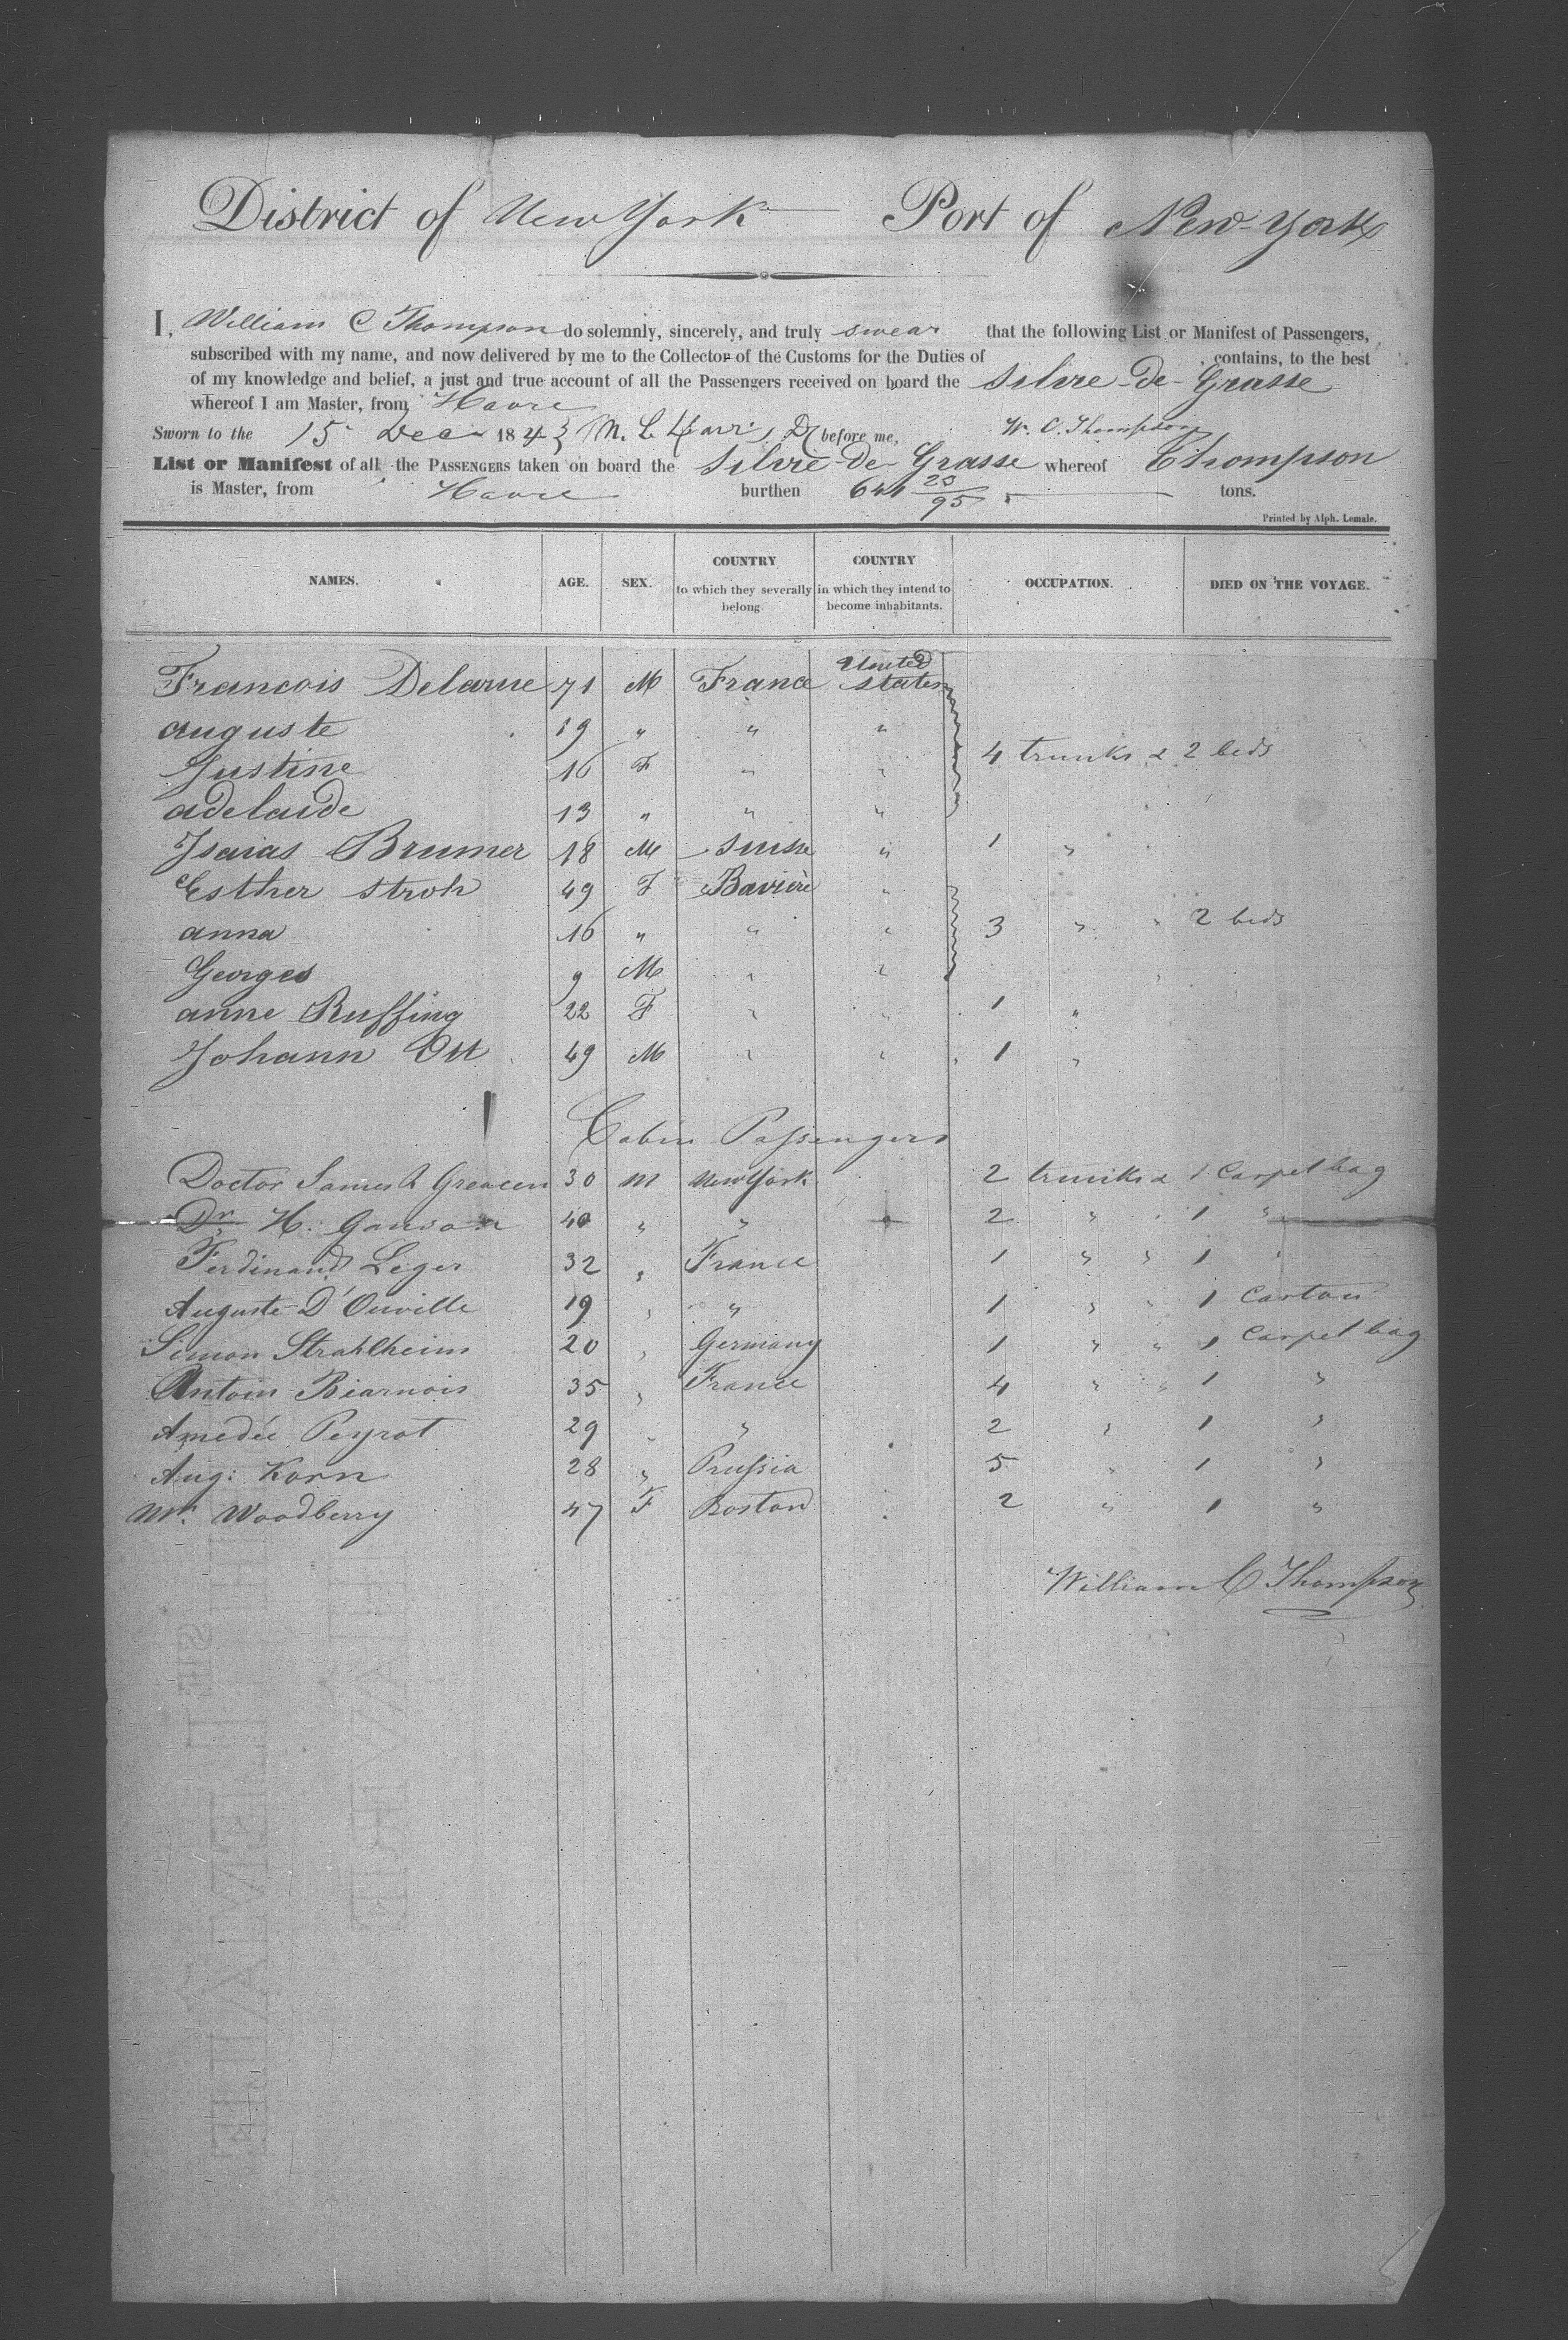 District of New York Port of New-York
I, William C Thompson do solemnly, sincerely, and truly swear that the following List or Manifest of Passengers,
subscribed with my name, and now delivered by me to the Collector of the Customs for the Duties of contains, to the best
of my knowledge and belief, a just and true account of all the Passengers received on board the Silvie-de-Grasse
whereof I am Master, from Havre
Sworn to the 15 Dec 1843 before me, W. C. Thompson
List or Manifest of all the PASSENGERS taken on board the Silvie-de-Grasse whereof Thompson
is Master, from Havre burthen 641 23/95 tons.
Printed by Alph. Lemale.
NAMES. AGE. SEX. COUNTRY to which they severally belong COUNTRY in which they intend to become inhabitants. OCCUPATION. DIED ON THE VOYAGE.
Francois Delarue 71 M France United States
auguste 19 " " "
Justine 16 F " " 4 trunks & 2 beds
adelaide 13 " " "
Isaias Brumer 18 M Suisse " 1 "
Esther Stroh 49 F Bavière "
anna 16 " " " 3 " " 2 beds
Georges 9 M " "
anne Ruffing 22 F " " 1 "
Johann Ott 49 M " " 1 "
Cabin Passengers
Doctor James Greacen 30 M New York 2 trunks & 1 Carpet bag
Dr H. 40 " " 2 " 1 "
Ferdinand Leger 32 " France 1 " " 1 "
Auguste D'Ouville 19 " " 1 " " 1 Carton
Simon Strahlheim 20 " Germany 1 " " 1 Carpet bag
Antoin Biarnois 35 " France 4 " " 1 "
Amedée Peyrot 29 " " 2 " 1 "
Aug: Korn 28 " Prussia 5 " 1 "
Mrs. Woodberry 47 F Boston 2 " 1 "
William C Thompson